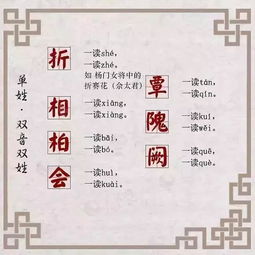 单姓·双音双姓
折
一读shé,
一读zhé.
如 杨门女将中的
折赛花（佘太君）
相
一读xiāng,
一读xiàng.
柏
一读bǎi,
一读bó.
会
一读huì,
一读kuài.
覃
一读tán,
一读qín.
隗
一读kuí,
一读wěi.
阙
一读quē,
一读què.